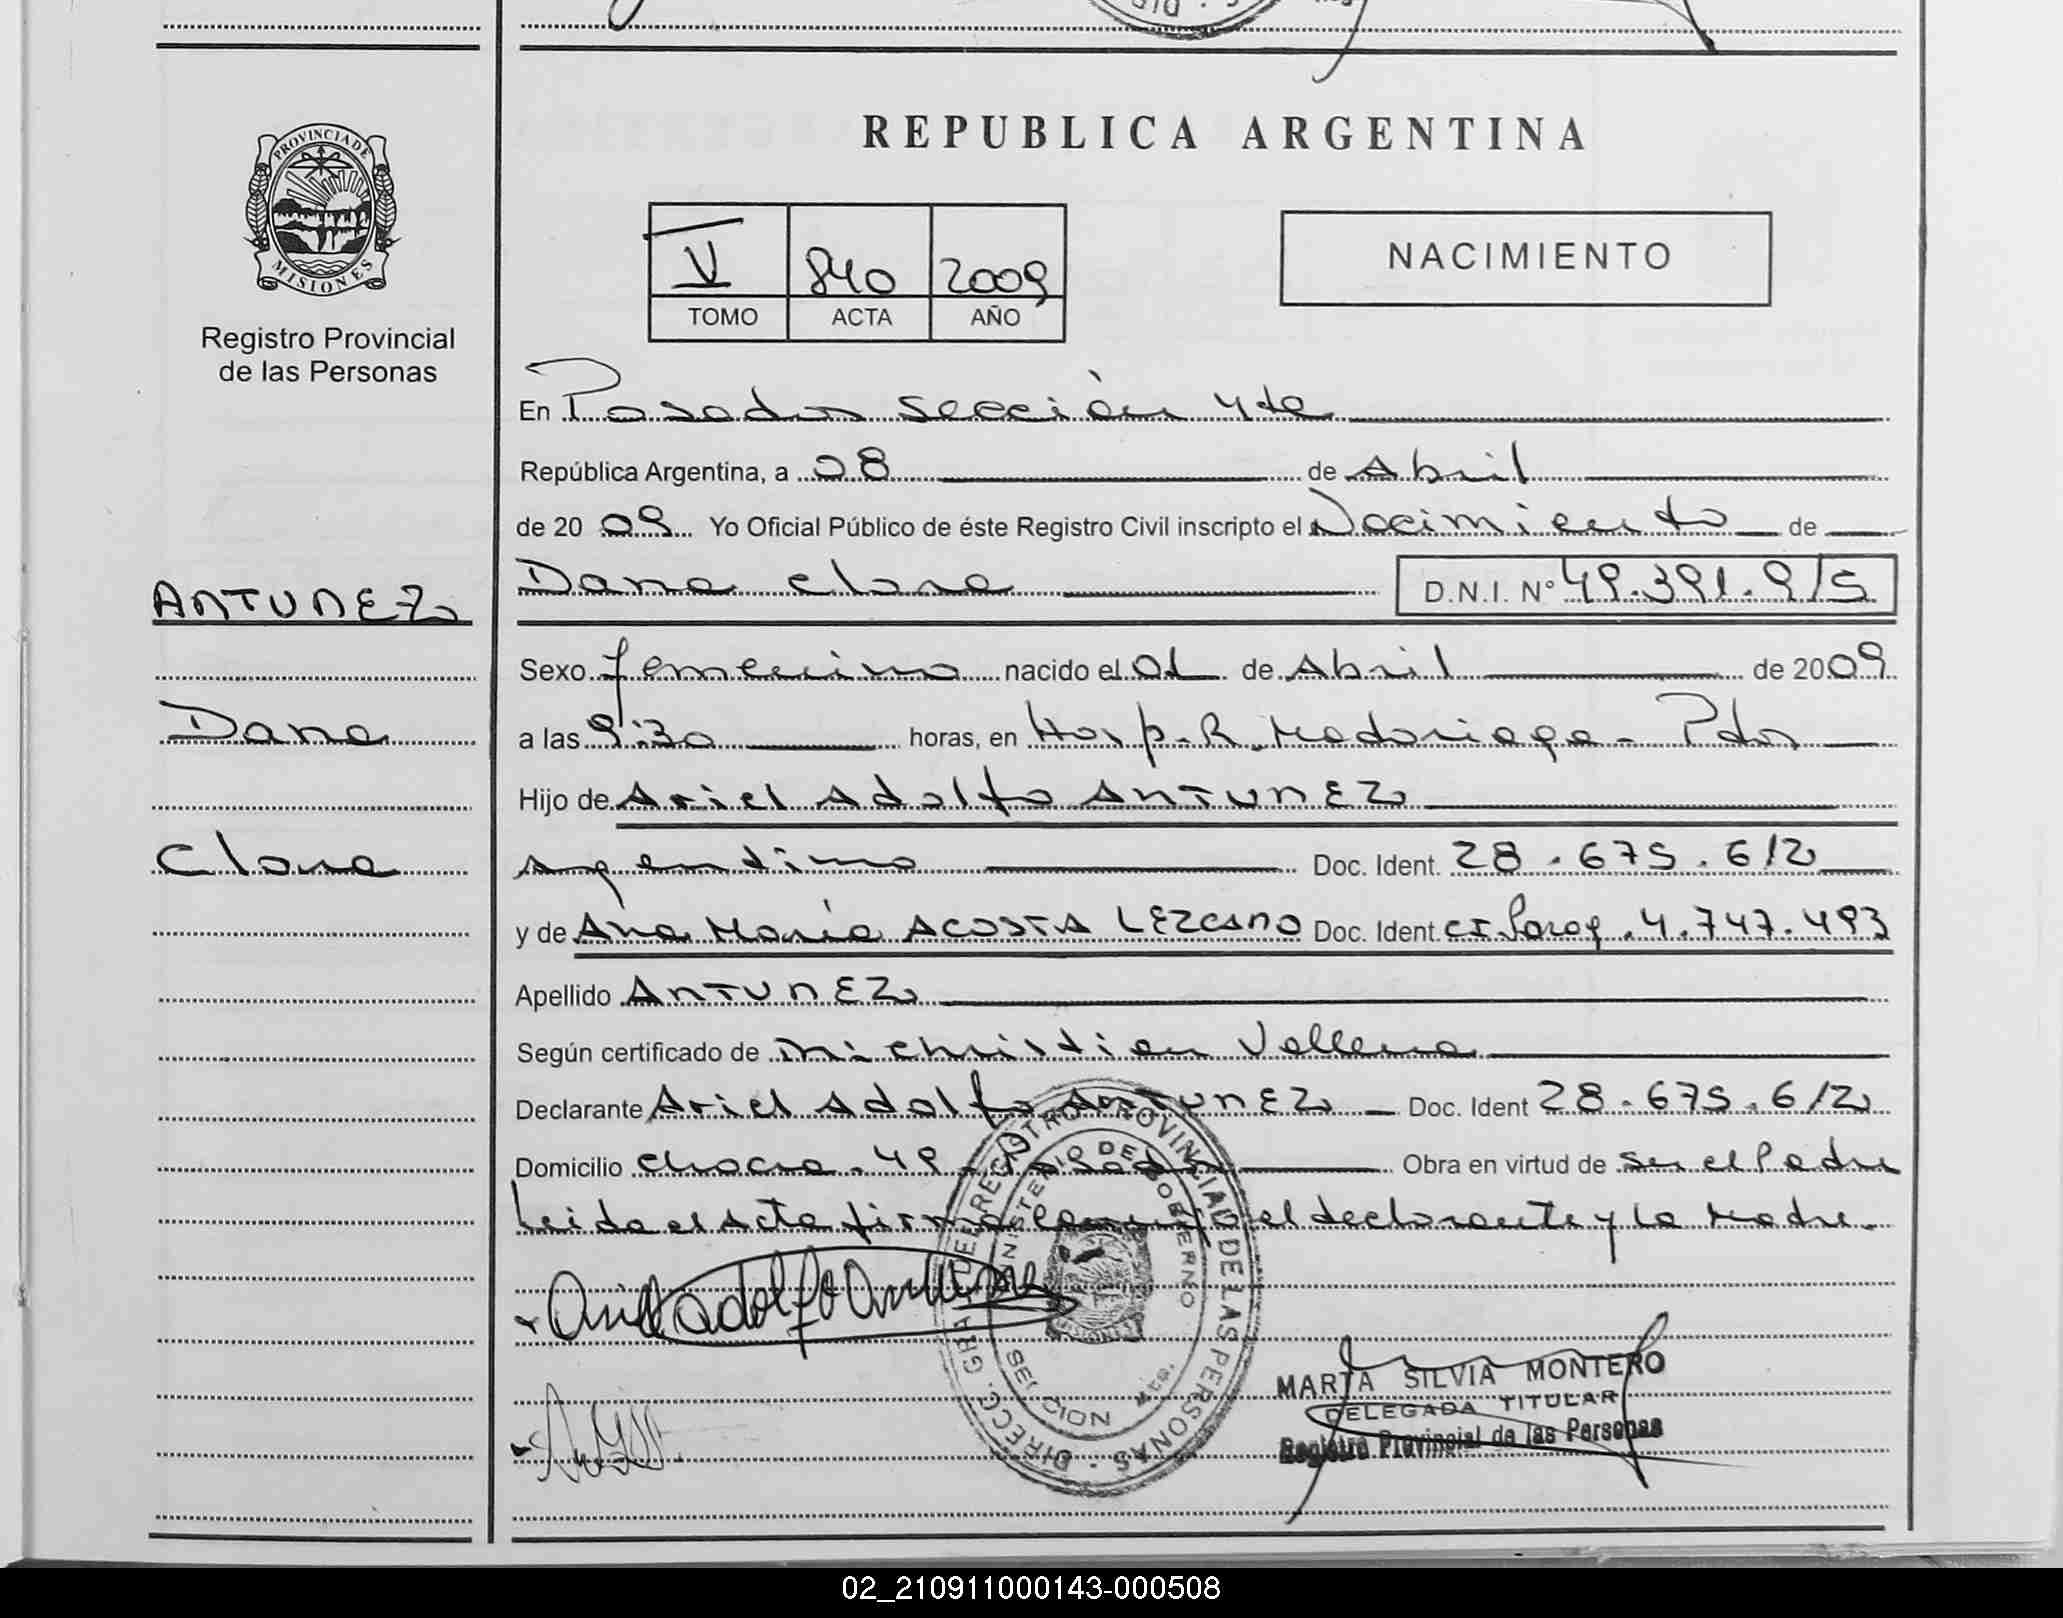 REPUBLICA ARGENTINA
PROVINCIA DE MISIONES
Registro Provincial
de las Personas
V 840 2009
TOMO ACTA AÑO
NACIMIENTO
En Posadas sección 4ta
República Argentina, a 08 de Abril
de 20 09 Yo Oficial Público de éste Registro Civil inscripto el Nacimiento de
ANTUNEZ
Dana Clara
Dana Clara D.N.I. Nº 49.391.915
Sexo femenino nacido el 01 de Abril de 2009
a las 9:30 horas, en Hosp. R. Madariaga - Pdas
Hijo de Ariel Adolfo ANTUNEZ
argentino Doc. Ident. 28.675.612
y de Ana María ACOSTA LEZCANO Doc. Ident. CI. Parag. 4.747.493
Apellido ANTUNEZ
Según certificado de Christian Vallena
Declarante Ariel Adolfo ANTUNEZ Doc. Ident 28.675.612
Domicilio Chacra. 49 - Posadas Obra en virtud de ser el Padre
Leida el Acta firma conmigo el declarante y la Madre.
DIRECC. GRAL. DEL REGISTRO PROVINCIAL DE LAS PERSONAS -
MINISTERIO DE GOBIERNO
SECCION 4ta.
MISIONES
MARTA SILVIA MONTERO
DELEGADA TITULAR
Registro Provincial de las Personas
02_210911000143-000508